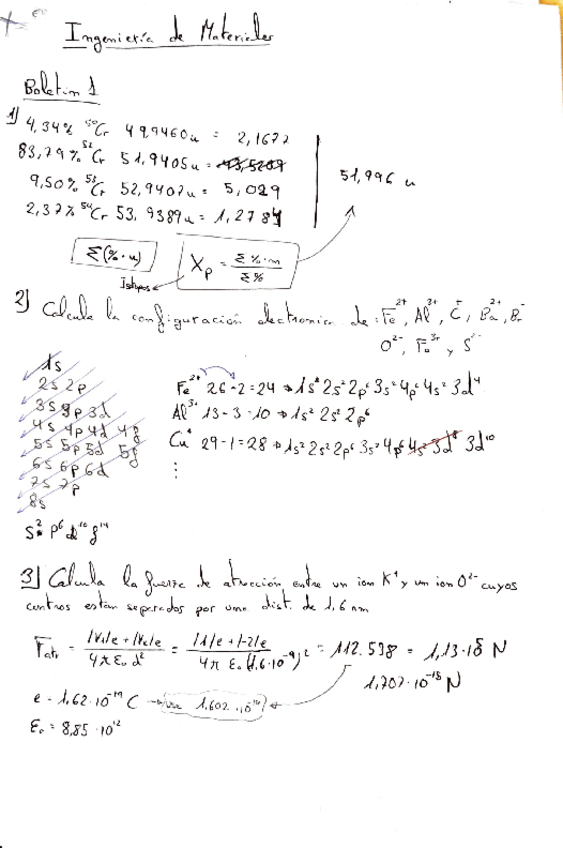 Ingeniería de Materiales
Boletin 1
1) 4,34% ⁵⁰Cr 49,9460u = 2,1677
83,79% ⁵²Cr 51,9405u =
9,50% ⁵³Cr 52,9407u = 5,029
2,37% ⁵⁴Cr 53,9389u = 1,2784
51,996 u
Σ(%·u) Xp = Σ%·m / Σ%
2) Calcula la configuración electronica de: Fe²⁺, Al³⁺, C⁺, Ba²⁺, Br⁻
O²⁻, Fe³⁺ y S²⁻
1s
2s 2p
3s 3p 3d
4s 4p 4d 4f
5s 5p 5d 5f
6s 6p 6d
7s 7p
8s
Fe²⁺ 26-2=24 → 1s² 2s² 2p⁶ 3s² 4p⁶ 4s² 3d⁴
Al³⁺ 13-3=10 → 1s² 2s² 2p⁶
Cu⁺ 29-1=28 → 1s² 2s² 2p⁶ 3s² 4p⁶ 4s² 3d⁸ 3d¹⁰
⋮
s² p⁶ d¹⁰ f¹⁴
3) Calcula la fuerza de atracción entre un ion K⁺ y un ion O²⁻ cuyos
centros estan separados por una dist. de 1,6 nm
Fatr = |V₁|e+|V₂|e / 4πε₀d² = |1|e+|-2|e / 4π ε₀(1,6·10⁻⁹)² = 112.598 = 1,13·10⁵ N
1,707·10⁻¹⁸ N
e = 1,62·10⁻¹⁹ C → 1,602·10⁻¹⁹
ε₀ = 8,85·10⁻¹²